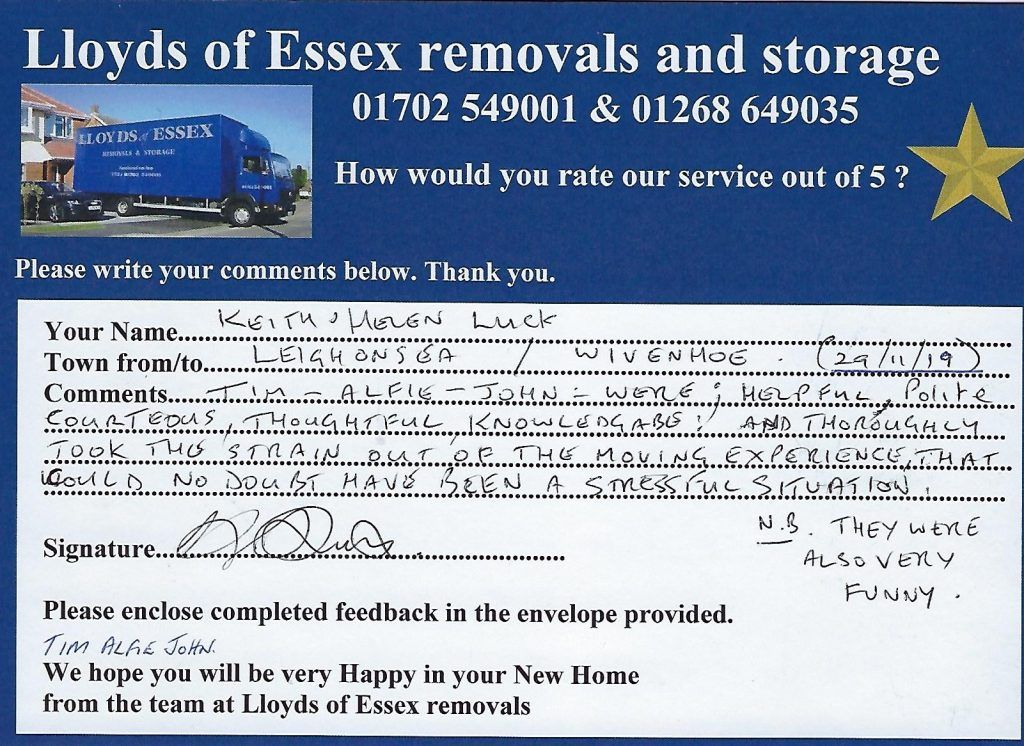 Lloyds of Essex removals and storage
01702 549001 & 01268 649035
LLOYDS of ESSEX
REMOVALS & STORAGE
How would you rate our service out of 5 ?
Please write your comments below. Thank you.
Your Name... KEITH & HELEN LUCK
Town from/to... LEIGHONSEA / WIVENHOE. (29/11/19)
Comments... TIM - ALFIE - JOHN - WERE; HELPFUL, Polite
COURTEOUS, THOUGHTFUL, KNOWLEDGABE! AND THOROUGHLY
TOOK THE STRAIN OUT OF THE MOVING EXPERIENCE, THAT
COULD NO DOUBT HAVE BEEN A STRESSFUL SITUATION.
Signature...
N.B. THEY WERE
ALSO VERY
FUNNY.
Please enclose completed feedback in the envelope provided.
TIM ALFIE JOHN.
We hope you will be very Happy in your New Home
from the team at Lloyds of Essex removals